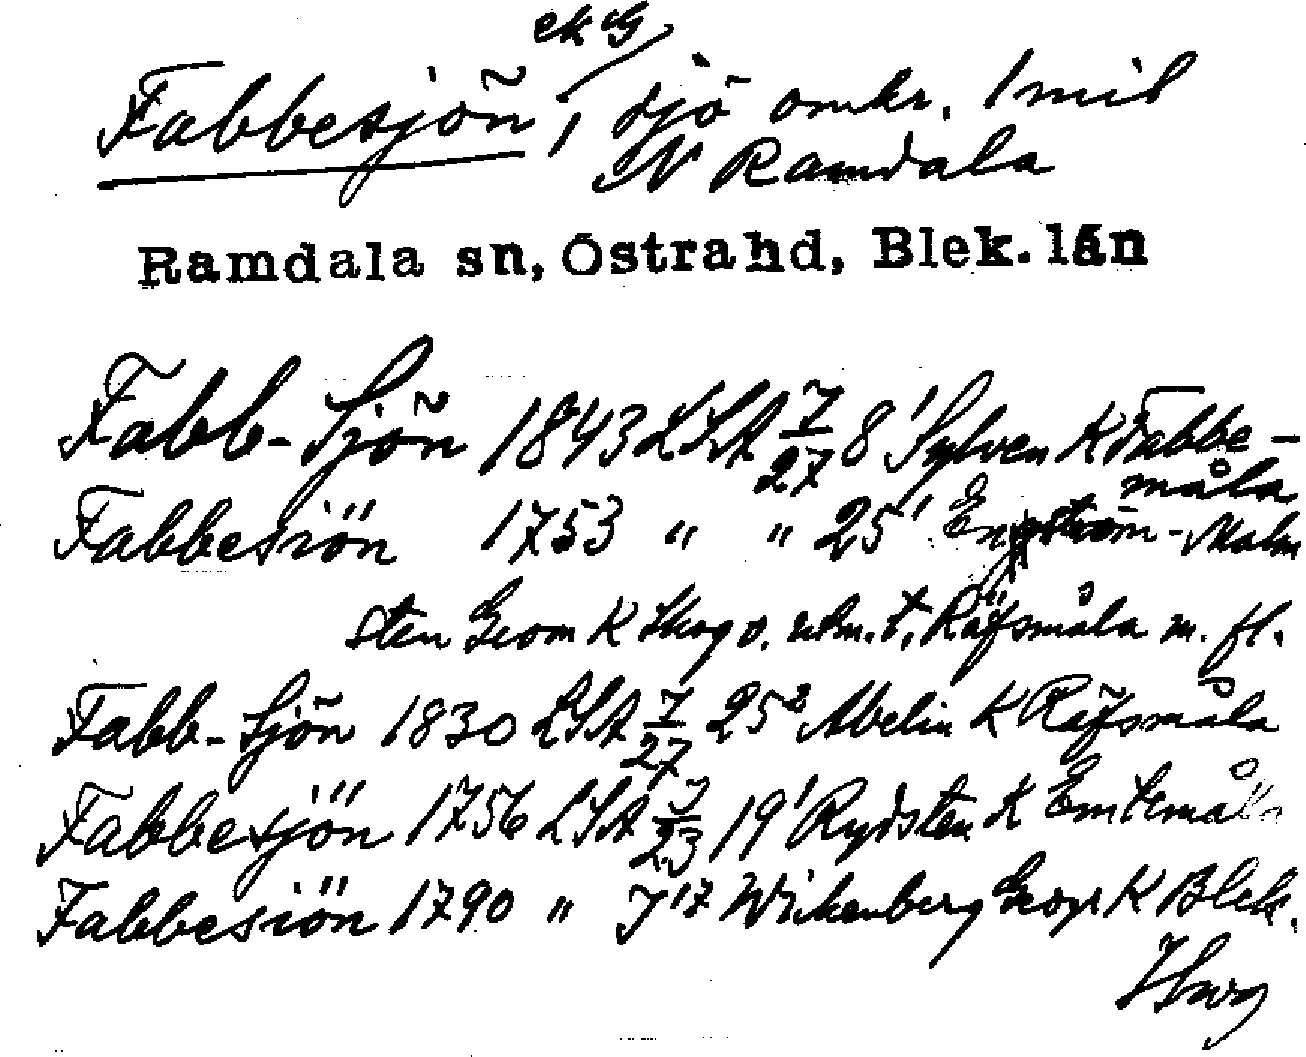 ek G
Fabbesjön, sjö omkr. 1 mil
N Ramdala
Ramdala sn, Östra hd, Blek. län
Fabb-Sjön 1843 LSA 7/27 8' Sylven K Fabbe-
måla
Fabbesiön 1753 " " 25' Engström-Malm
sten Geom K Skog o. utm. t. Räfsmåla m. fl.
Fabb-Sjön 1830 LSA 7/27 25² Abelin K Räfsmåla
Fabbesjön 1756 LSA 7/23 19' Rydsten K Emtemåla
Fabbesiön 1790 " J'17 Wickenberg Geogr K Blek.